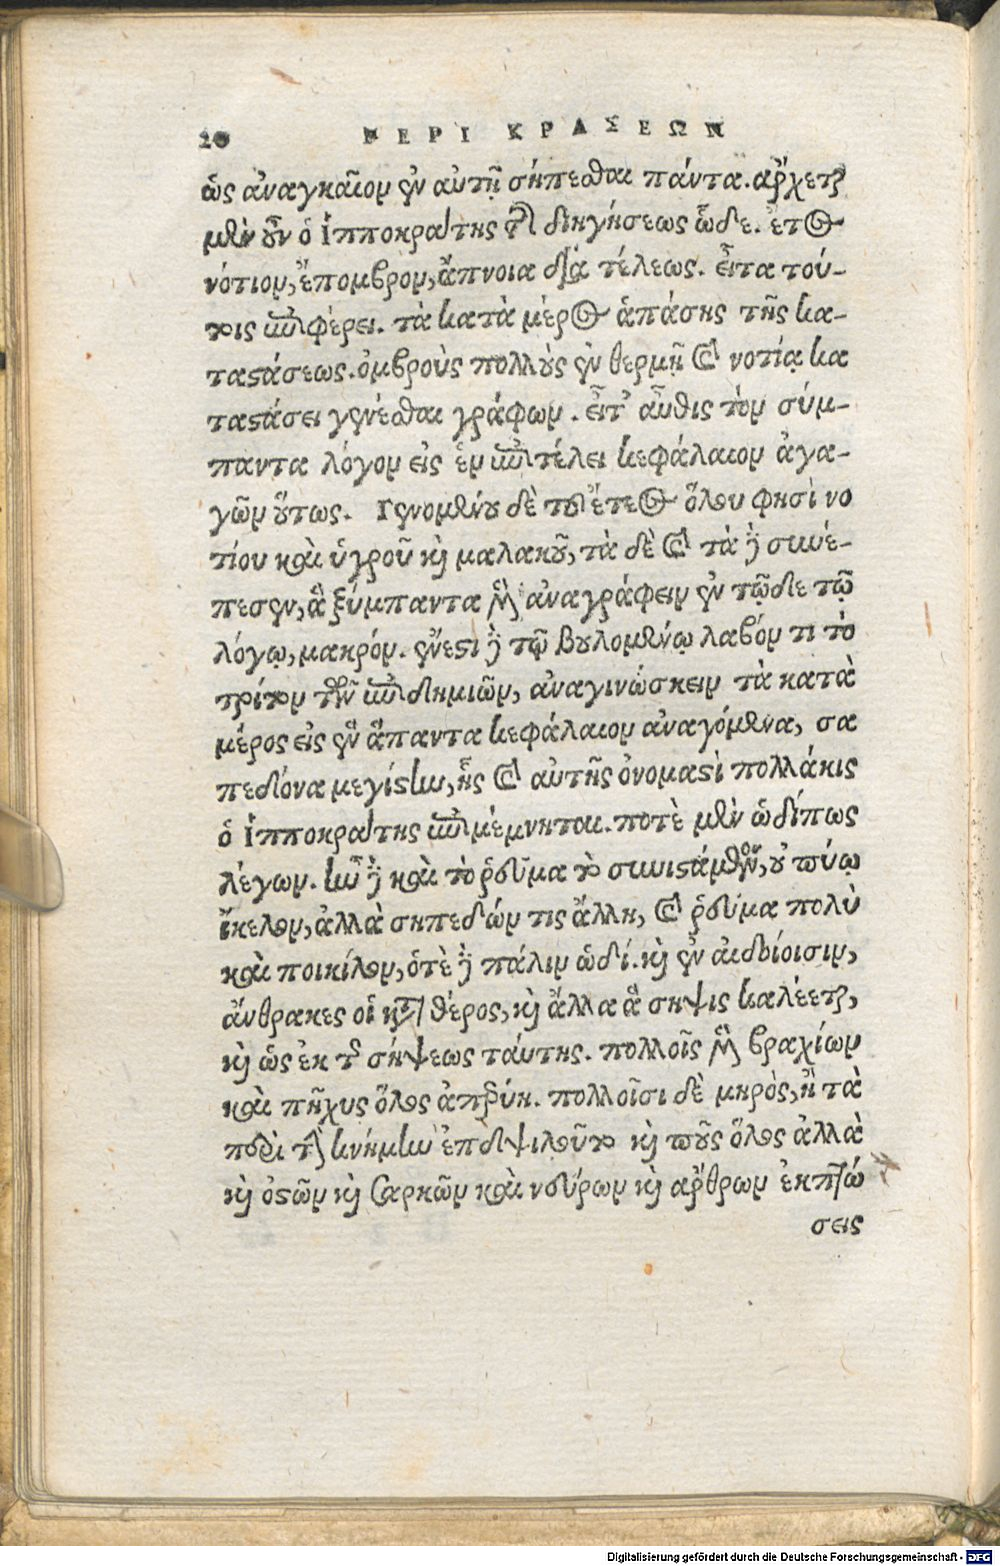 20 ΠΕΡΙ ΚΡΑΣΕΩΝ
ὡς ἀναγκαῖον ἐν αὐτῇ σήπεσθαι πάντα. ἄρχεται
μὲν οὖν ὁ Ἱπποκράτης τῆς διηγήσεως ὧδε. ἔτος
νότιον, ἔπομβρον, ἄπνοια διὰ τέλεως. εἶτα τού-
τοις ἐπιφέρει. τὰ κατὰ μέρος ἁπάσης τῆς κα-
ταστάσεως. ὀμβροὺς πολλοὺς ἐν θερμῇ καὶ νοτίᾳ κα
ταστάσει γενέσθαι γράφων. εἶτ’ αὖθις τὸν σύμ-
παντα λόγον εἰς ἓν ἐπὶ τέλει κεφάλαιον ἀγα-
γῶν οὕτως. Γενομένου δὲ τοῦ ἔτεος ὅλου φησὶ νο
τίου καὶ ὑγροῦ καὶ μαλακοῦ, τὰ δὲ καὶ τὰ δὲ συνέ-
πεσεν, ἃ ξύμπαντα μὲν ἀναγράφειν ἐν τῷδε τῷ
λόγῳ, μακρόν. ἔνεστι δὲ τῷ βουλομένῳ λαβόν τι τὸ
τρίτον τῶν ἐπιδημιῶν, ἀναγινώσκειν τὰ κατὰ
μέρος εἰς ἓν ἅπαντα κεφάλαιον ἀναγόμενα, ση
πεδόνα μεγίστην, ἧς καὶ αὐτῆς ὀνομαστὶ πολλάκις
ὁ Ἱπποκράτης ἐπιμέμνηται. ποτὲ μὲν ὡδίπως
λέγων. ἦν δὲ καὶ τὸ ῥεῦμα τὸ συνιστάμενον, οὐ πύῳ
ἴκελον, ἀλλὰ σηπεδών τις ἄλλη, καὶ ῥεῦμα πολὺ
καὶ ποικίλον, ὁτὲ δὲ πάλιν ὡδί. καὶ ἐν αἰδοίοισιν,
ἄνθρακες οἱ κατὰ θέρος, καὶ ἄλλα ἃ σηψις καλέεται,
καὶ ὡς ἐκ τῆς σήψεως ταύτης. πολλοῖς μὲν βραχίων
καὶ πῆχυς ὅλος ἀπερύη. πολλοῖσι δὲ μηρὸς, ἢ τὰ
περὶ τὴν κνήμην ἐπεψιλοῦτο καὶ ποῦς ὅλος ἀλλὰ
καὶ ὀστῶν καὶ σαρκῶν καὶ νεύρων καὶ ἄρθρων ἐκπτώ
σεις
Digitalisierung gefördert durch die Deutsche Forschungsgemeinschaft - DFG